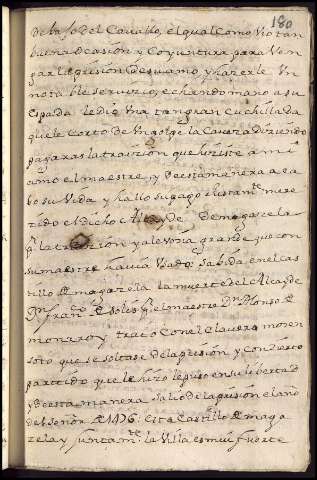 180
debajo del Cavallo, el qual como vio tan
buena ocasion y coyuntura para ven
gar la prision de su amo y hazerle un
notable servizio, echando mano a su
espada le dio una tan gran cuchillada
que le corto de un golpe la caveza diziendo
pagaras la traizion que hiziste a mi
amo el maestre, y de esta manera aca
bo su vida y hallo su pago bastante mere
zido el dicho Alcayde de magazela
por la traizion y alevosia grande que con
su maestre havia usado: sabida en el cas
tillo de magazela la muerte del Alcayde
Dn. franco. de solis por el maestre Dn. Alonso de
monrroy, trato con el clavero moren
soto que se soltase de la prision, y conzierto
partido que le hizo le puso en su libertad
y de esta manera salio de la prision el año
del señor de 1476: esta Castillo de maga
zela y juntamte. la villa es mui fuerte